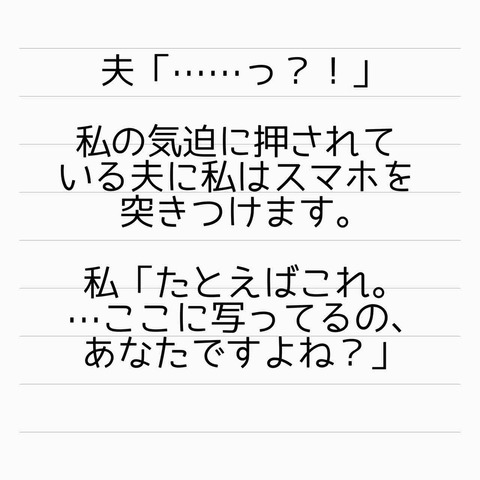 夫「……っ？！」
私の気迫に押されて
いる夫に私はスマホを
突きつけます。
私「たとえばこれ。
…ここに写ってるの、
あなたですよね？」